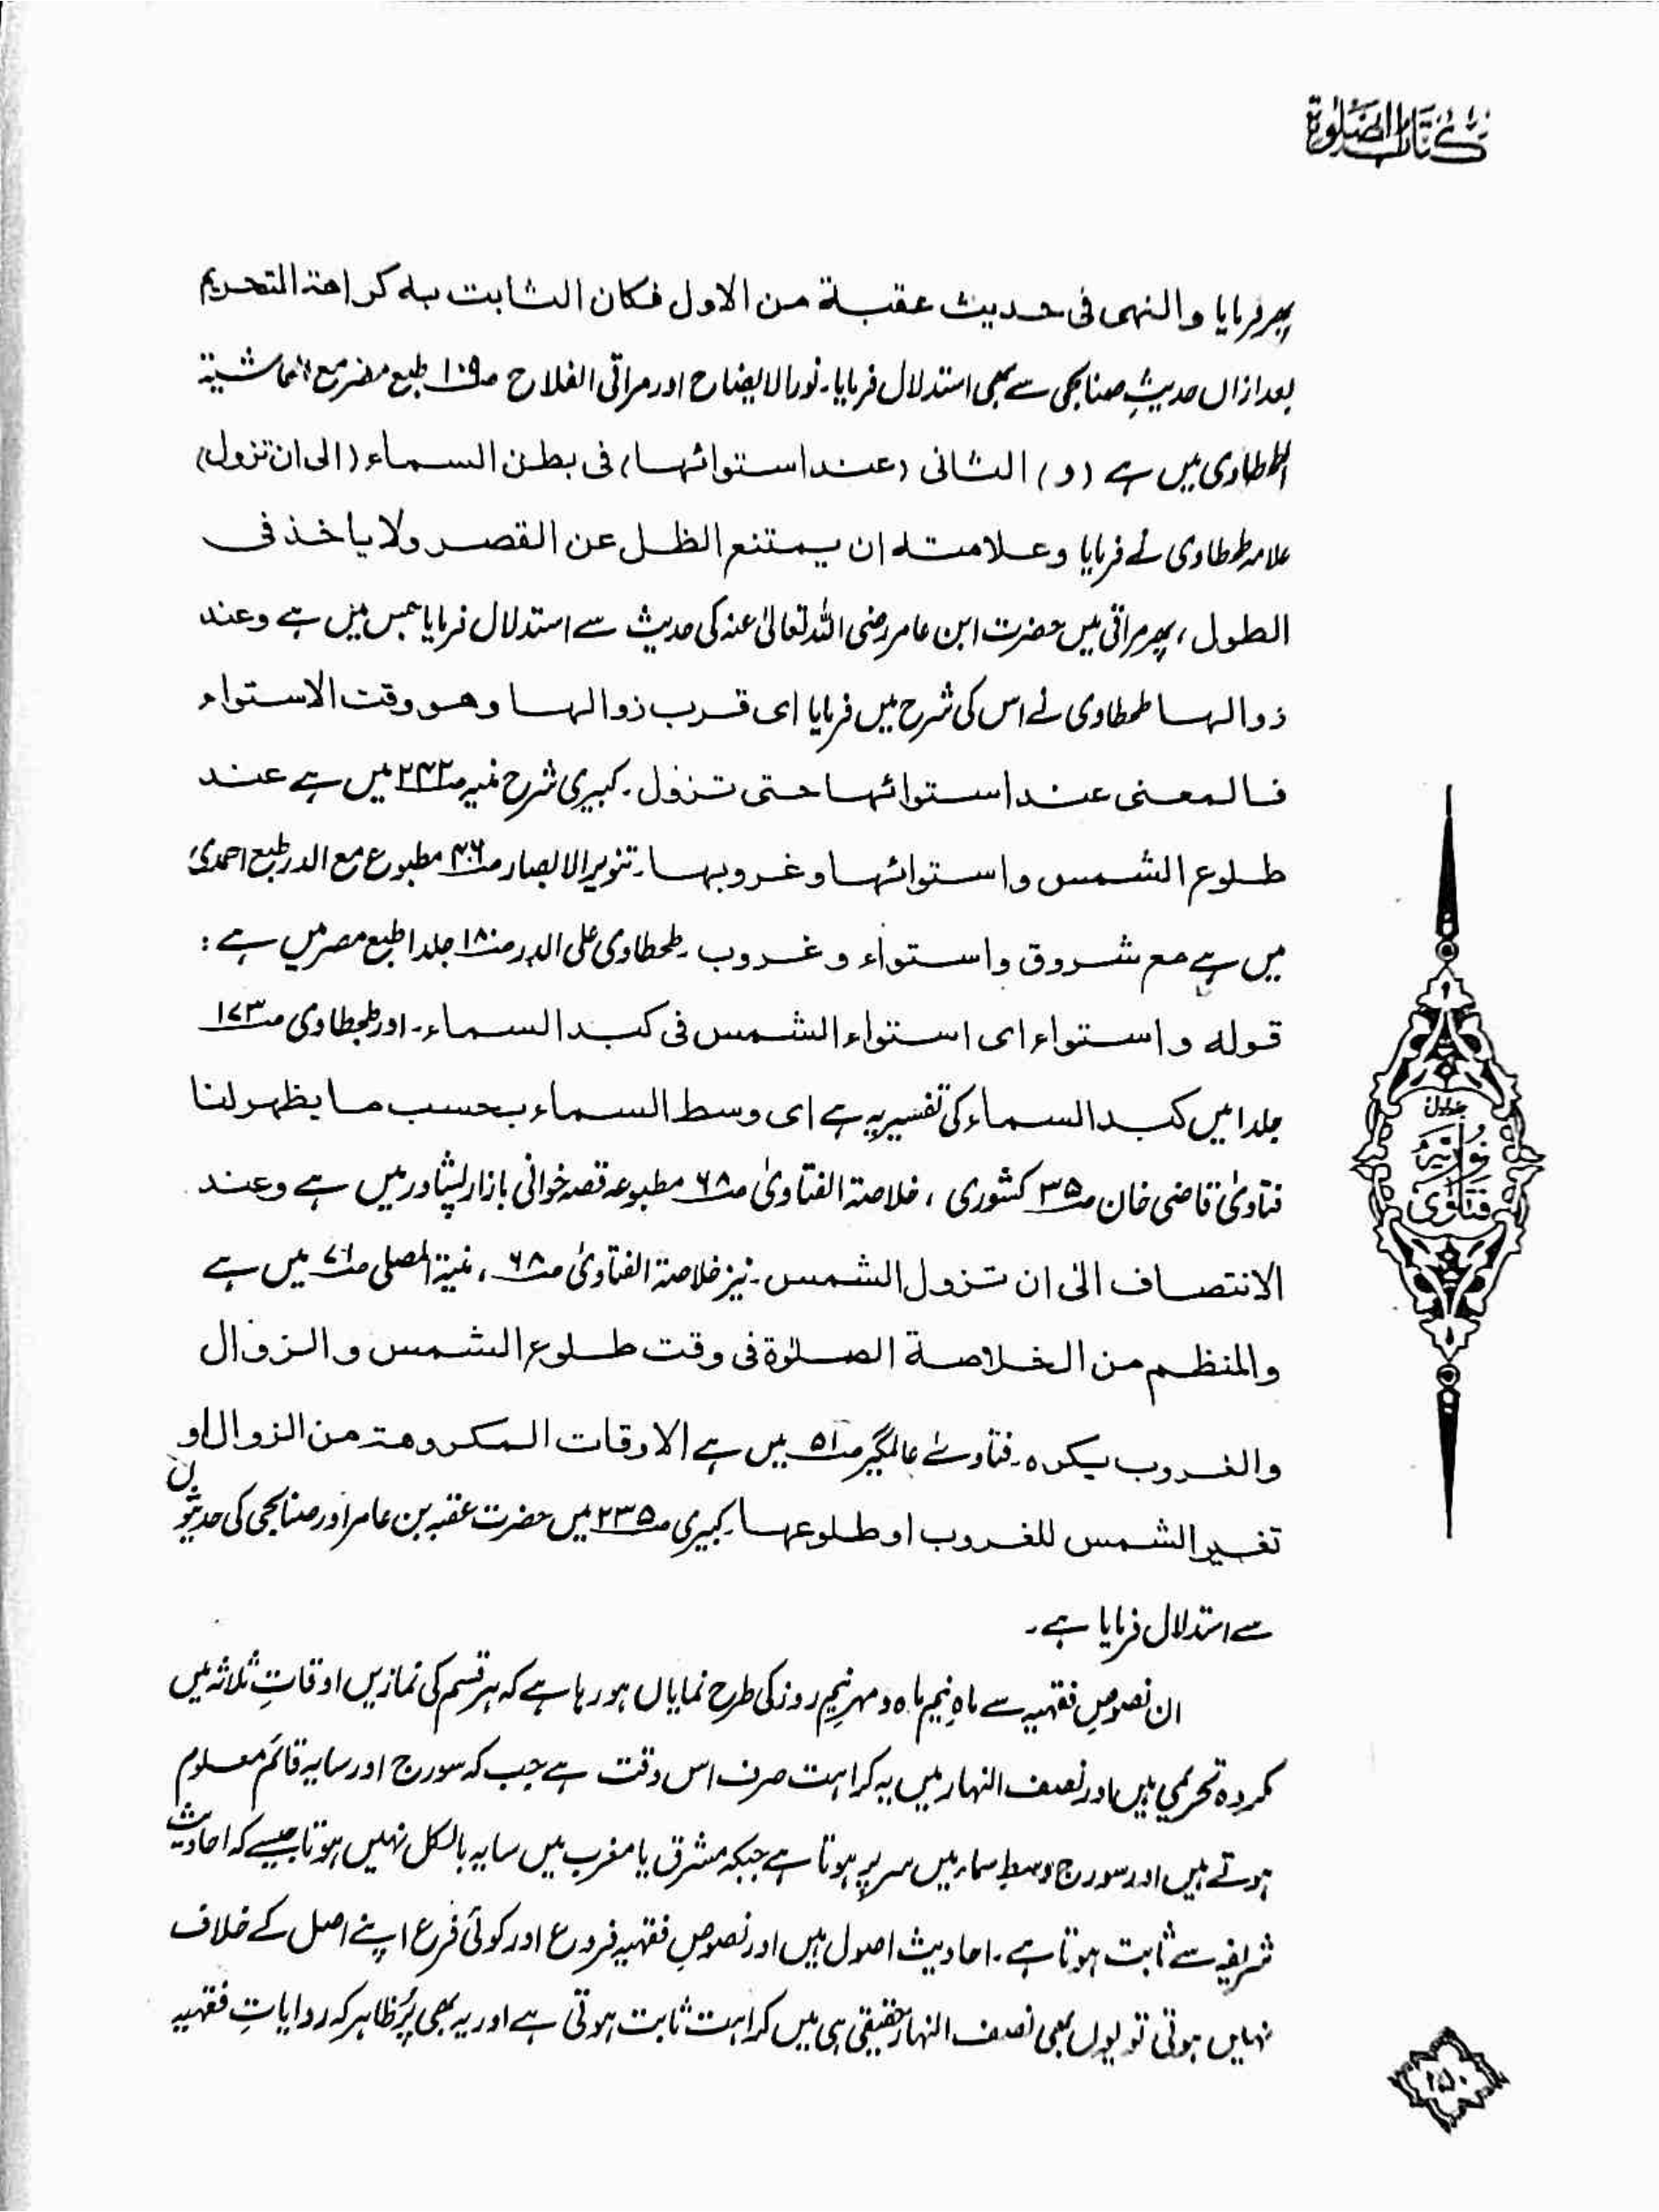 كتاب الصلوة
پھر فرمایا والنهی فی حديث عقبة من الاول فكان الثابت به كراهة التحريم
بعد ازاں حدیثِ صنابحی سے بھی استدلال فرمایا۔ نور الایضاح اور مراقی الفلاح ص۱۰۹ طبع مصر مع الحاشیۃ
الطحطاوی میں ہے (و) الثانی (عند استوائها) فی بطن السماء (الی ان تزول)
علامہ طحطاوی نے فرمایا وعلامته ان يمتنع الظل عن القصر ولا ياخذ فی
الطول، پھر مراقی میں حضرت ابن عامر رضی اللہ تعالیٰ عنہ کی حدیث سے استدلال فرمایا جس میں ہے وعند
زوالها طحطاوی نے اس کی شرح میں فرمایا ای قرب زوالها وهو وقت الاستواء
فالمعنی عند استوائها حتی تزول۔ کبیری شرح منیہ ص۲۴۲ میں ہے عند
طلوع الشمس واستوائها وغروبها۔ تنویر الابصار ص۴۰۶ مطبوع مع الدر طبع احمدی
میں ہے مع شروق واستواء وغروب۔ طحطاوی علی الدر ص۱۸۰ جلد ۱ طبع مصر میں ہے :
قوله واستواء ای استواء الشمس فی كبد السماء۔ اور طحطاوی ص۱۷۳
جلد ۱ میں كبد السماء کی تفسیر یہ ہے ای وسط السماء بحسب ما يظهر لنا
فتاویٰ قاضی خان ص۳۵ کشوری، خلاصۃ الفتاویٰ ص۶۸ مطبوعہ قصہ خوانی بازار پشاور میں ہے وعند
الانتصاف الی ان تزول الشمس۔ نیز خلاصۃ الفتاویٰ ص۶۸، منیۃ المصلی ص۷۱ میں ہے
والنظم من الخلاصة الصلوٰة فی وقت طلوع الشمس والزوال
والغروب يكره۔ فتاوےٰ عالمگیر ص۵۱ میں ہے الاوقات المكروهة من الزوال او
تغير الشمس للغروب او طلوعها۔ کبیری ص۲۳۵ میں حضرت عقبہ بن عامر اور صنابحی کی حدیثوں
سے استدلال فرمایا ہے۔
ان نصوصِ فقہیہ سے ماہِ نیم ماہ و مہرِ نیم روز کی طرح نمایاں ہو رہا ہے کہ ہر قسم کی نمازیں اوقاتِ ثلاثہ میں
مکروہ تحریمی ہیں اور نصف النہار میں یہ کراہت صرف اس وقت ہے جب کہ سورج اور سایہ قائم معلوم
ہوتے ہیں اور سورج وسطِ سماء میں سر پر ہوتا ہے جبکہ مشرق یا مغرب میں سایہ بالکل نہیں ہوتا جیسے کہ احادیث
شریفہ سے ثابت ہوتا ہے۔ احادیث اصول ہیں اور نصوصِ فقہیہ فروع اور کوئی فرع اپنے اصل کے خلاف
نہیں ہوتی تو یوں بھی نصف النہار حقیقی ہی میں کراہت ثابت ہوتی ہے اور یہ بھی پُر ظاہر کہ روایاتِ فقہیہ
جلد اول
نوریہ
فتاوی
۲۵۰